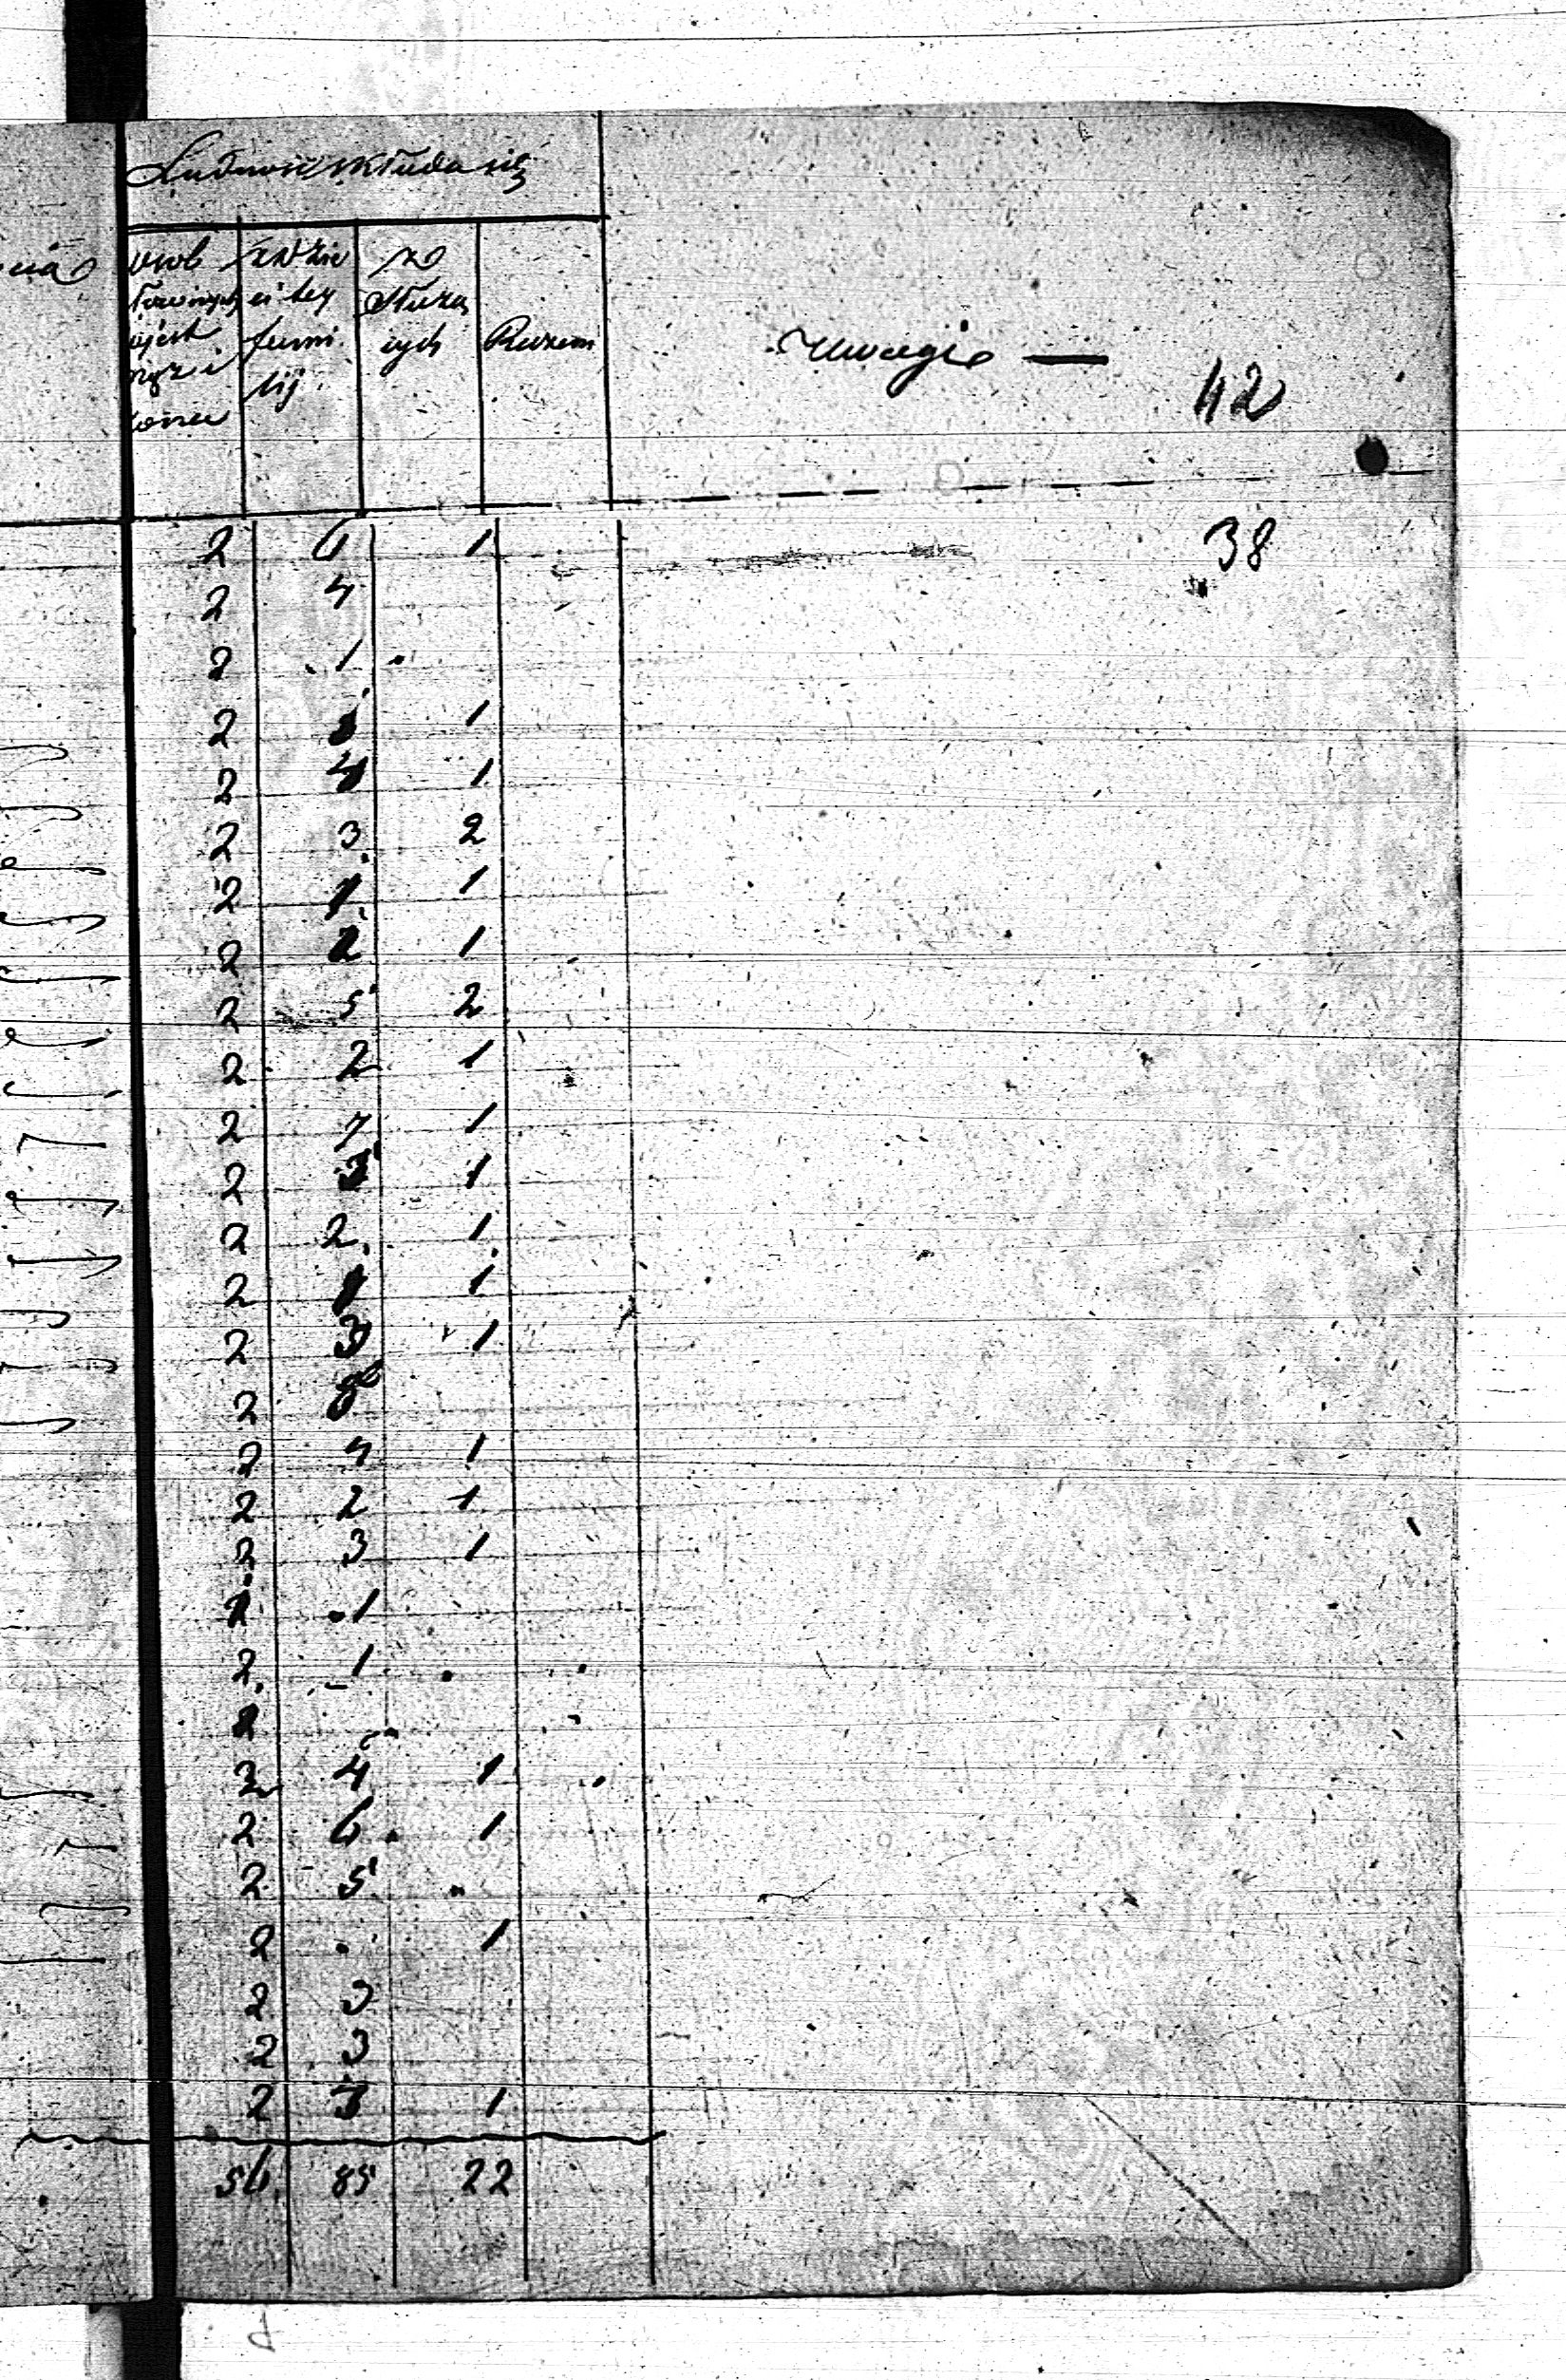 Ludność składa się
osob z dzie ze
ci tey Służą
famii cych Razem
lij.
Uwagi —
42
38
2 6 1
2 4
2 1
2 1
2 4 1
2 3 2
2 1 1
2 2 1
2 5 2
2 2 1
2 7 1
2 3 1
2 2 1
2 1 1
2 3 1
2 8
2 4 1
2 2 1
2 3 1
2 1
2 1
2 4 1
2 6 1
2 5
2 1
2 3
2 3
2 3 1
56 85 22